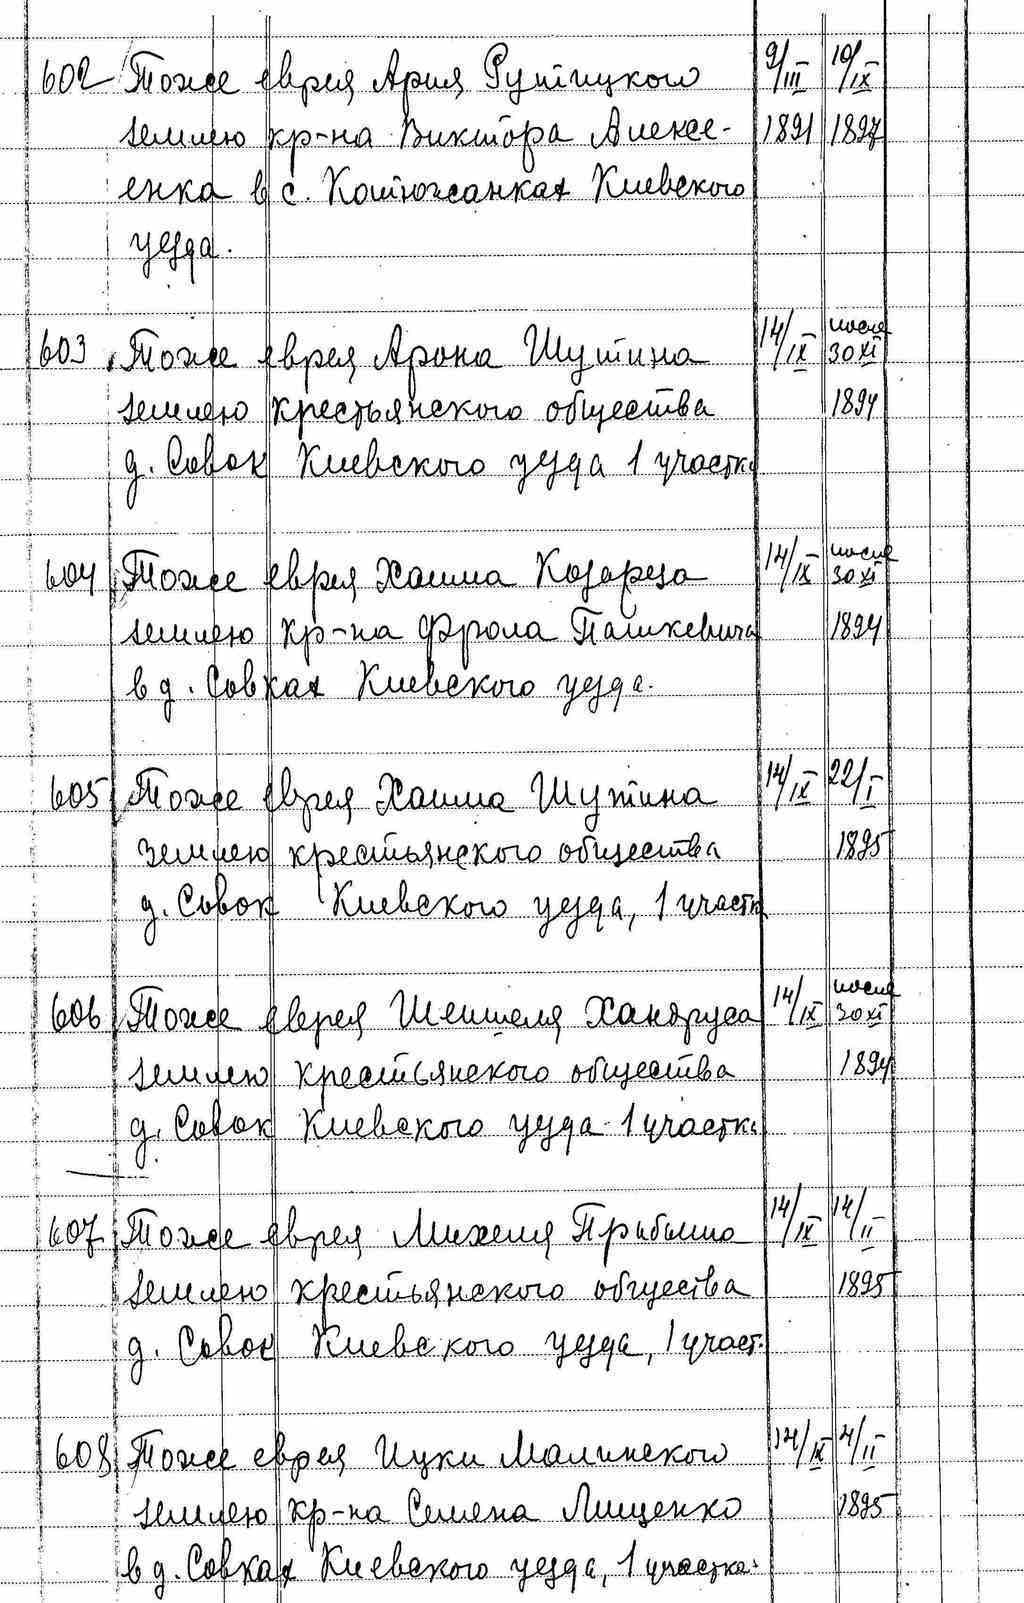 602 Тоже еврея Ария Рутицкого 9/III 10/IX
землею кр-на Виктора Алексе- 1891 1897
енка в с. Катюжанках Киевского
уезда.
603 Тоже еврея Арона Шутина 14/IX после 30 XI
землею крестьянского общества 1894
д. Совок Киевского уезда 1 участка
604 Тоже еврея Хаима Козореза 14/IX после 30 XI
землею кр-на Фрола Пашкевича 1894
в д. Совках Киевского уезда.
605 Тоже еврея Хаима Шутина 14/IX 22/I
землею крестьянского общества 1895
д. Совок Киевского уезда, 1 участк
606 Тоже еврея Шепшеля Хандруса 14/IX после 30 XI
землею крестьянского общества 1894
д. Совок Киевского уезда 1 участка
607 Тоже еврея Михеля Прибыша 14/IX 14/II
землею крестьянского общества 1895
д. Совок Киевского уезда, 1 участ.
608 Тоже еврея Ицки Малинского 14/IX 4/II
землею кр-на Семена Лищенко 1895
в д. Совках Киевского уезда, 1 участка.